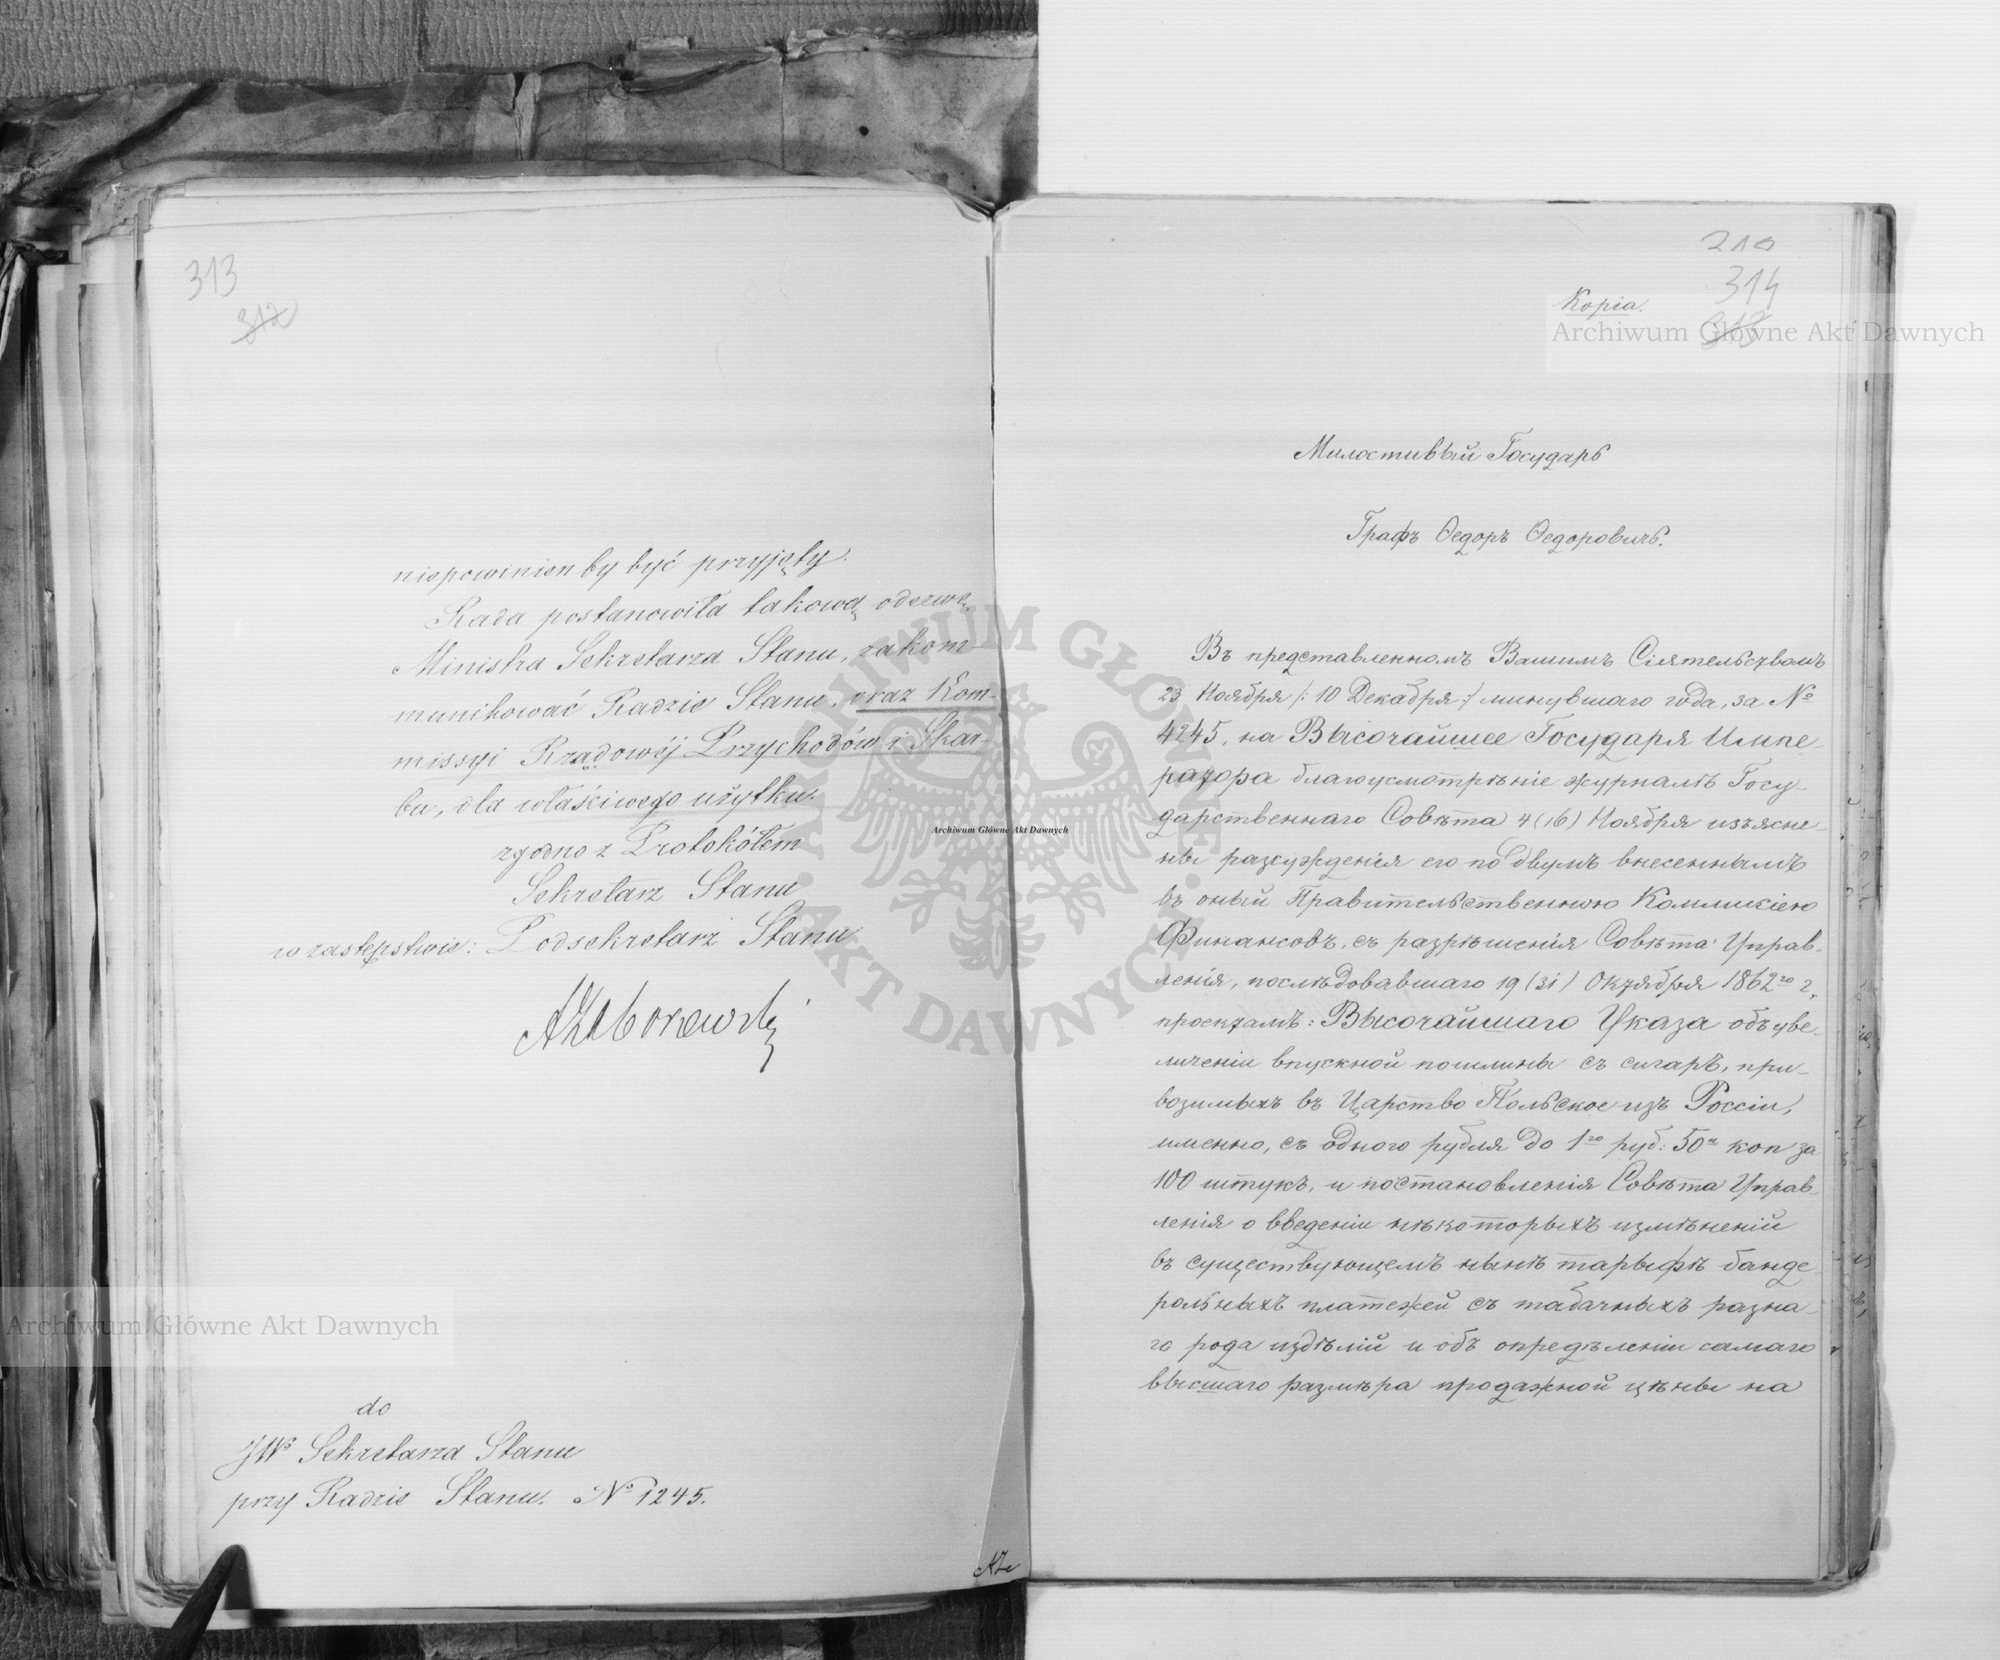 313
312
niepowinien by być przyjęty.
Rada postanowiła takową odezwę
Ministra Sekretarza Stanu, zakom-
munikować Radzie Stanu, oraz Kom-
missyi Rządowéj Przychodów i Skar-
bu, dla właściwego użytku.
zgodno z Protokółem
Sekretarz Stanu
w zastępstwie: Podsekretarz Stanu
do
JW° Sekretarza Stanu
przy Radzie Stanu. N° 1245.
210
314
313
Копіа.
Милостивый Государь
Графъ Ѳедоръ Ѳедоровичъ.
Въ представленномъ Вашимъ Сіятельствомъ
23 Ноября /: 10 Декабря :/ минувшаго года, за №
4245, на Высочайшее Государя Импе-
ратора благоусмотрѣніе журналѣ Госу-
дарственнаго Совѣта 4 (16) Ноября изъясне-
ны разсужденія его по двумъ внесеннымъ
въ оный Правительственною Коммисіею
Финансовъ, съ разрѣшенія Совѣта Управ-
ленія, послѣдовавшаго 19 (31) Октября 1862го г,
проектамъ: Высочайшаго Указа объ уве-
личеніи впускной пошлины съ сигаръ, при-
возимыхъ въ Царство Польское изъ Россіи,
именно, съ одного рубля до 1го руб: 50и коп за
100 штукъ, и постановленія Совѣта Управ-
ленія о введеніи нѣкоторыхъ измѣненій
въ существующемъ нынѣ тарыфѣ банде-
рольныхъ платежей съ табачныхъ разна-
го рода издѣлій и объ опредѣленіи самаго
высшаго размѣра продажной цѣны на
Archiwum Główne Akt Dawnych
Archiwum Główne Akt Dawnych
Archiwum Główne Akt Dawnych
ARCHIWUM GŁÓWNE · AKT DAWNYCH ·